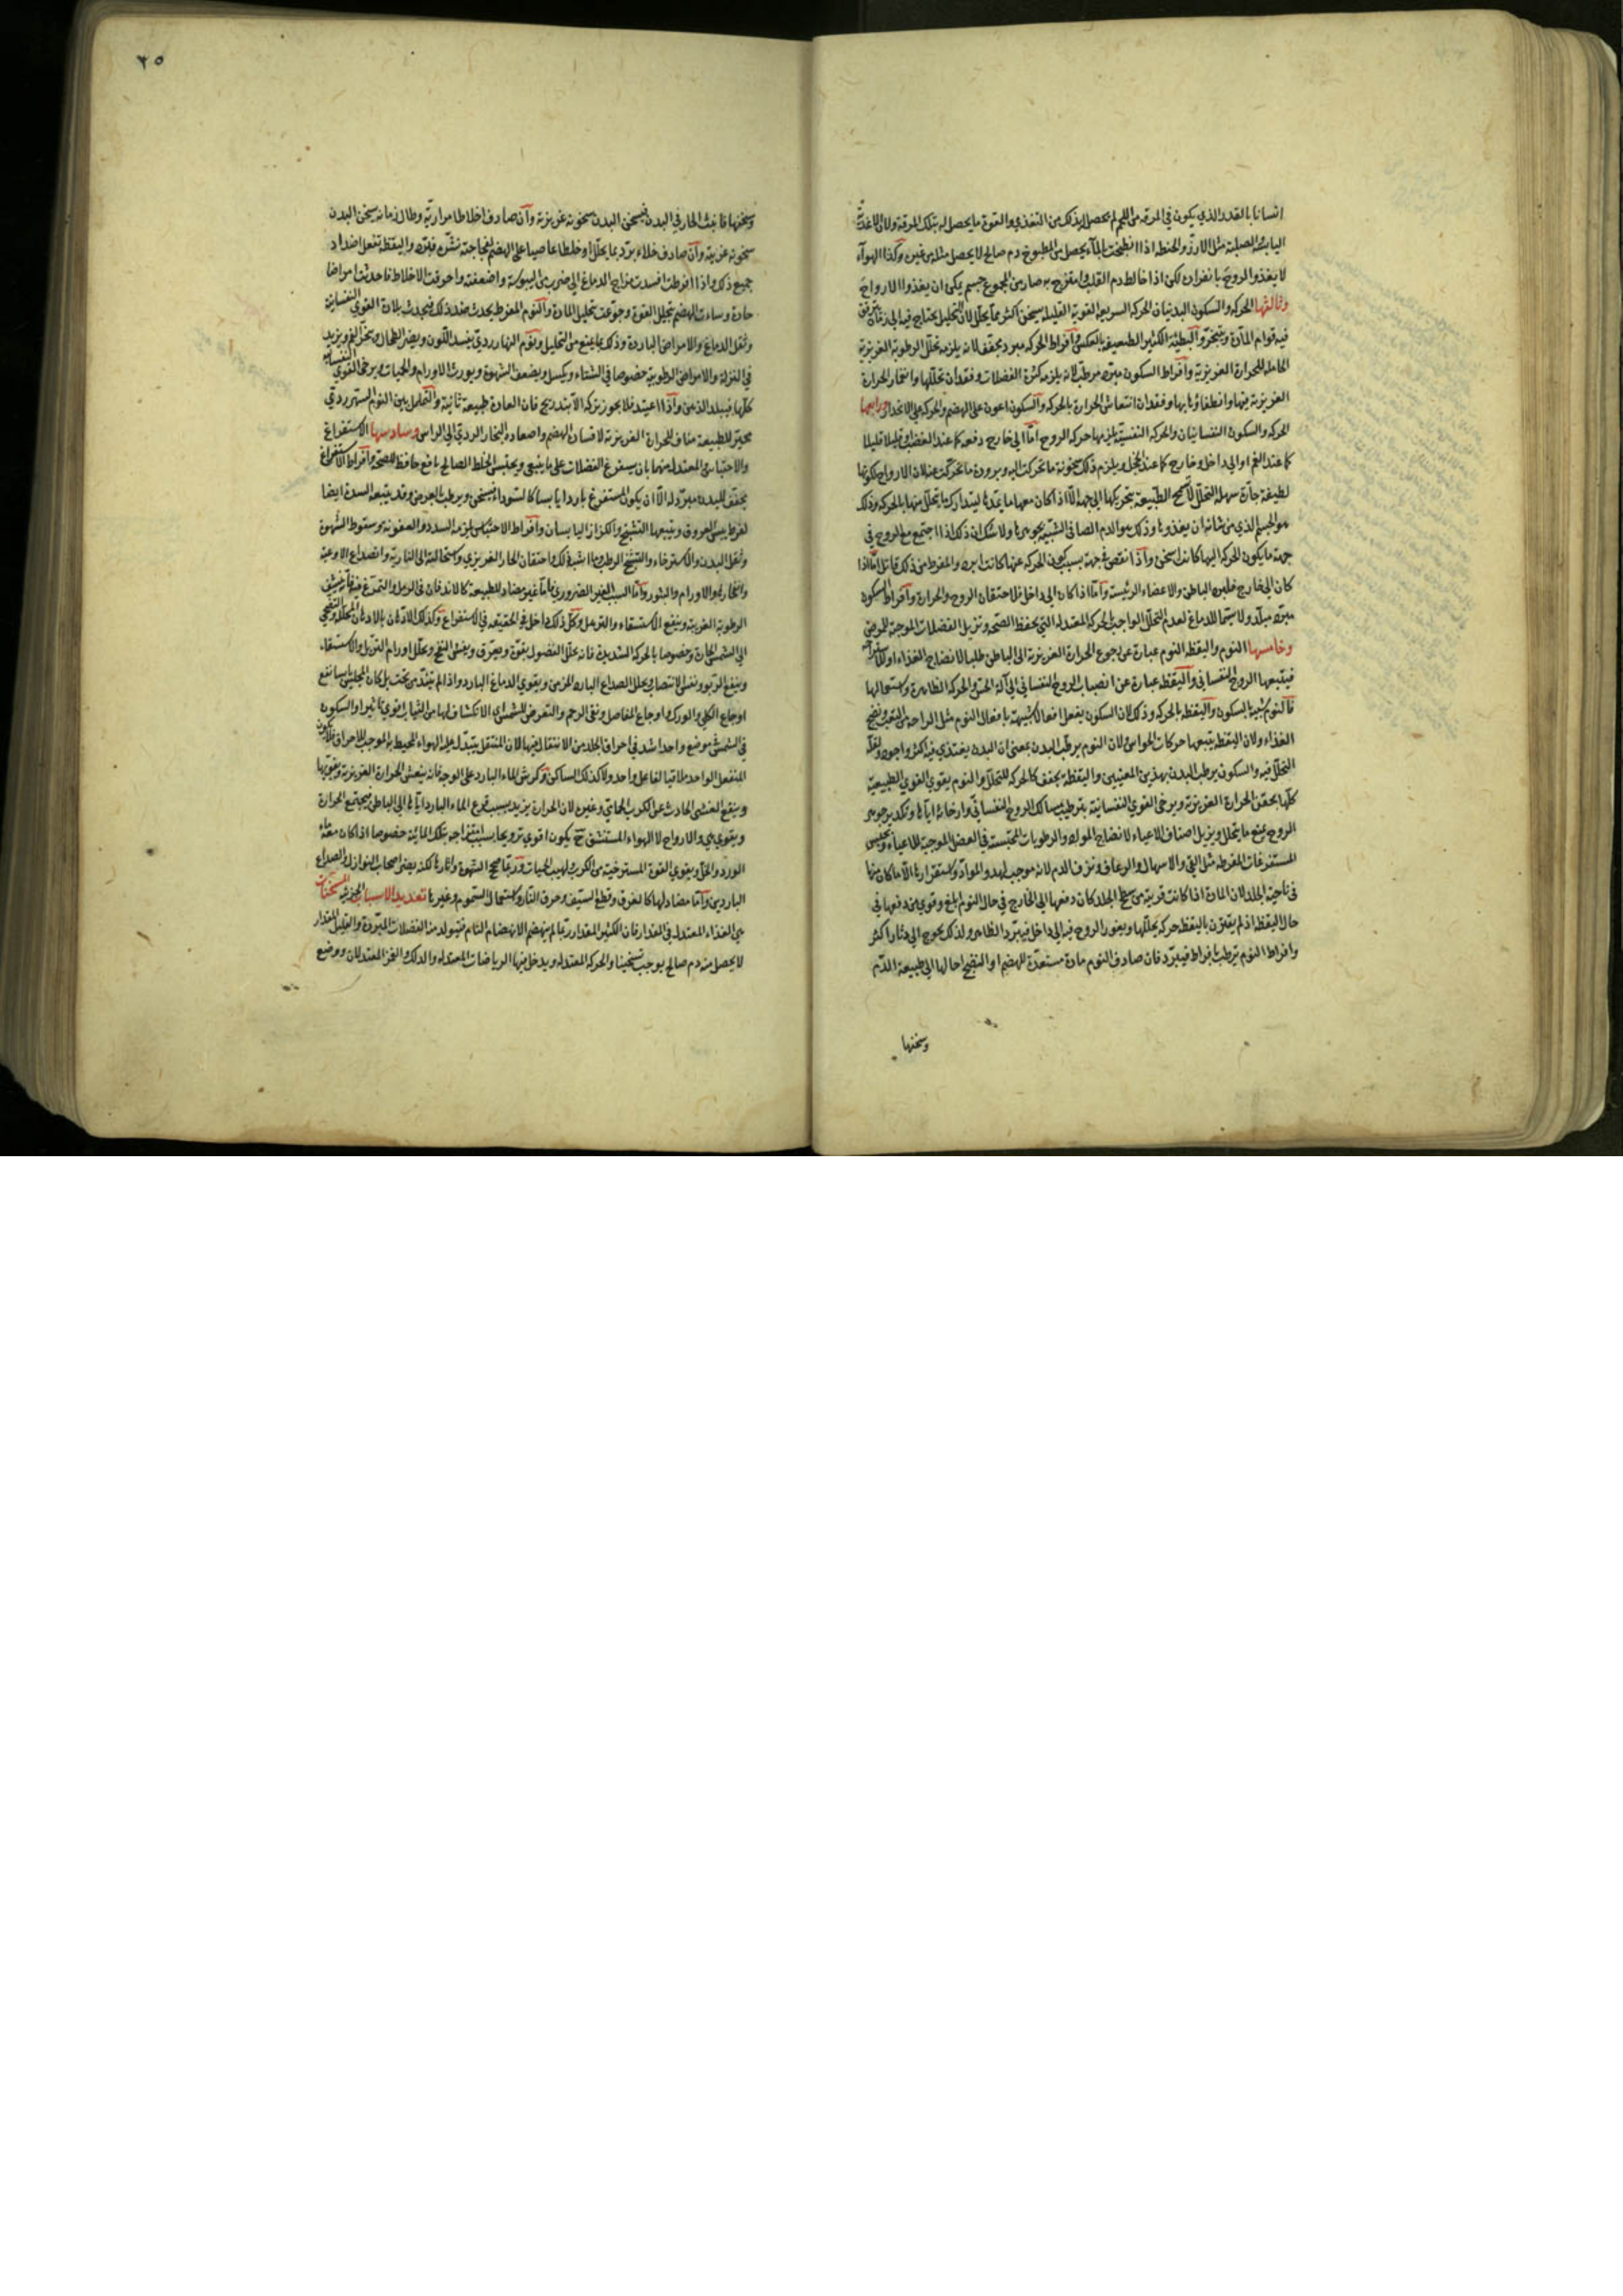 انسانا بالقدر الذي يكون في المرقة من اللحم لم يحصل له بذلك من التغذي والقوة ما يحصل له بتلك المرقة ولان الاغذية
اليابسة الصلبة مثل الارز والحنطة اذا انطبخت بالماء يحصل من المطبوخ دم صالح لا يحصل مثله من غيره وكذا الهواء
لا يغذوا الروح بانفراده لكن اذا خالط دم القلب وامتزج به صار من المجموع جسم يمكن ان يغذوا الارواح
وثالثها الحركة والسكون البدنيان الحركة السريعة القوية القليلة يسخن اكثر مما يحلل لان التحليل يحتاج فيه الى زمان يترقق
فيه قوام المادة ويتبخر والبطيئة الكثيرة الضعيفة بالعكس وافراط الحركة مبرد مجفف لانه يلزمه تحلل الرطوبة الغريزية
الحاملة للحرارة الغريزية وافراط السكون مبرد مرطب لانه يلزمه كثرة الفضلات وفقدان تحللها وانغمار الحرارة
الغريزية فيها وانطفاؤها بها وفقدان انتعاش الحرارة بالحركة والسكون اعون على الهضم والحركة على الانحدار ورابعها
الحركة والسكون النفسانيان والحركة النفسية يلزمها حركة الروح اما الى خارج دفعة كما عند الغضب او قليلا قليلا
كما عند الغم او الى داخل وخارج كما عند الخجل ويلزم ذلك سخونة ما تحركت اليه وبرودة ما تحركت عنه لان الارواح لكونها
لطيفة حارة سهلة التحلل لا تسمح الطبيعة بتحريكها الى جهة الا اذا كان معها ما يمدها ليتدارك ما يتحلل منها بالحركة وذلك
هو الجسم الذي من شانه ان يغذوها وذلك هو الدم الصافي الشبيه بجوهرها ولا شك ان ذلك اذا اجتمع مع الروح في
جهة ما يكون الحركة اليها كانت اسخن واذا نقص في جهة بسبب كون الحركة عنها كانت ابرد والمفرط من ذلك قاتل اما اذا
كان الى خارج فلبرد الباطن والاعضاء الرئيسة واما اذا كان الى داخل فلاحتقان الروح والحرارة وافراط السكون
مبرد مبلد ولا سيما للدماغ لعدم التحلل الواجب بالحركة المعتدلة التي تحفظ الصحة وتزيل الفضلات الموجبة للمرض
وخامسها النوم واليقظة النوم عبارة عن رجوع الحرارة الغريزية الى الباطن طلبا لانضاج الغذاء
فيتبعها الروح النفساني واليقظة عبارة عن انصباب الروح النفساني الى آلة الحس والحركة الظاهرة واستعمالها
فالنوم شبيه بالسكون واليقظة بالحركة وذلك لان السكون يفعل افعالا شبيهة بافعال النوم مثل الراحة من التعب ونضج
الغذاء ولان اليقظة يتبعها حركات الحواس ولان النوم يرطب البدن بمعنى ان البدن يغتذي فيه اكثر واجود ولقلة
التحلل فيه والسكون يرطب البدن بهذين المعنيين واليقظة يجفف كالحركة للتحلل والنوم يقوي القوى الطبيعية
كلها بحقن الحرارة الغريزية ويرخي القوى النفسانية بترطيب مسالك الروح النفساني وارخائه اياها وتكدير جوهر
الروح يمنع ما يتحلل ويزيل اصناف الاعياء لانضاج المواد والرطوبات المحتبسة في العضل الموجبة للاعياء ويحبس
المستفرغات المفرطة مثل القي والاسهال والرعاف ونزف الدم لانه موجب لهدو المواد واستقرارها الا ما كان منها
في ناحية الجلد لان المادة اذا كانت قريبة من سطح الجلد كان دفعها الى الخارج في حال النوم ابلغ واقوى من دفعها في
حال اليقظة اذ لم يقترن باليقظة حركة يحللها ويغور الروح فيه الى داخل فيبرد الظاهر ولذلك يحوج الى دثار اكثر
وافراط النوم يرطب بافراط فيبرد فان صادف النوم مادة مستعدة للهضم او النضج احالها الى طبيعة الدم
وسخنها
٢٥
وسخنها فانبث الحار في البدن فيسخن البدن سخونة غريزية وان صادف اخلاطا مرارية وطال زمانه سخن البدن
سخونة غريبة وان صادف خلاء برد بما يحلل او خلطا عاصيا على الهضم نشره فبرد واليقظة تفعل اضداد
جميع ذلك واذا افرطت افسدت مزاج الدماغ الى ضرب من اليبوسة واضعفته واحرقت الاخلاط فاحدثت امراضا
حادة وساءت الهضم بتحليل القوة وجوعت بتحليل المادة والنوم المفرط يحدث ضد ذلك فيحدث بلادة القوى النفسانية
وثقل الدماغ والامراض الباردة وذلك بما يمنع من التحليل ونوم النهار ردي يفسد اللون ويضر الطحال ويبخر الفم ويزيد
في النزلة والامراض الرطوبية خصوصا في الشتاء ويكسل ويضعف الشهوة ويورث الاورام والحميات ويرخي القوى النفسانية
كلها فيبلد الذهن واذا اعتيد فلا يجوز تركه الا بتدريج فان العادة طبيعة ثانية والتململ بين النوم والسهر ردي
محير للطبيعة مناف للحرارة الغريزية لافساد الهضم واصعاده البخار الردي الى الراس وسادسها الاستفراغ
والاحتباس المعتدل منهما بان يستفرغ الفضلات على ما ينبغي ويحتبس الخلط الصالح نافع حافظ للصحة وافراط الاستفراغ
يجفف للبدن مبرد له الا ان يكون المستفرغ باردا يابسا كالسوداء فيسخن ويرطب بالعرض وقد يتبعه السدة ايضا
لفرط يبس العروق ويتبعها التشنج والكزاز اليابسان وافراط الاحتباس يلزمه السدد والعفونة وسقوط الشهوة
وثقل البدن والاسترخاء والتشنج الرطب وما اشبه ذلك واحتقان الحار الغريزي واستحالته الى النارية وانصداع الاوعية
وانفجارها والاورام والبثور واما السبب الغير الضروري فاما غير مضاد للطبيعة كالاندفان في الرمل والتمرغ فيه فانه ينشف
الرطوبة الغريبة وينفع الاستسقاء والترهل وكل ذلك داخل في الحقيقة في الاستفراغ وكذلك الادهان بالادهان المحللة
الى الشمس الحارة وخصوصا بالحركة الشديدة فانه يحلل الفضول بقوة ويعرق ويفش النفخ ويحلل اورام الترهل والاستسقاء
وينفع الربو ونفس الانتصاب ويحلل الصداع البارد المزمن ويقوي الدماغ البارد واذا لم يبتل من تحت بل كان المجلس يابسا نفع
اوجاع الكلى والورك واوجاع المفاصل ونقى الرحم والتعرض للشمس اي الانكشاف لها من الثياب اقوى تاثيرا والسكون
في الشمس في موضع واحد اشد في احراق الجلد من الانتقال فيها لان المنتقل يتبدل عليه الهواء المحيط به الموجب للاحراق فلا يكون
المنفعل الواحد ملاقيا لفاعل واحد ولا كذلك الساكن وكرش الماء البارد على الوجه فانه ينعش الحرارة الغريزية ويقويها
وينفع الغشى الحادث عن الكرب الحمامي وغيره لان الحرارة يزيد بسبب قرع الماء البارد اياها الى الباطن فيجتمع الحرارة
ويقوي هي والارواح لا الهواء المستنشق ح يكون اقوى ترويحا بسبب امتزاجه بتلك المائية خصوصا اذا كان معه
الورد والخل ويقوي القوة المسترخية من الكرب ولهيب الحميات وربما صحح الشهوة واثارها لكنه يضر اصحاب النوازل والصداع
الباردين واما مضاد لها كالغرق وقطع السيف وحرق النار واستعمال السموم وغيرها تعديد الاسباب الجزئية المسخنات
هي الغذاء المعتدل في المقدار فان الكثير المقدار ربما لم ينهضم الانهضام التام فتتولد منه الفضلات المبردة والقليل المقدار
لا يحصل منه دم صالح يوجب تسخينا والحركة المعتدلة ويدخل فيها الرياضات المعتدلة والدلك والغمز المعتدلان ووضع